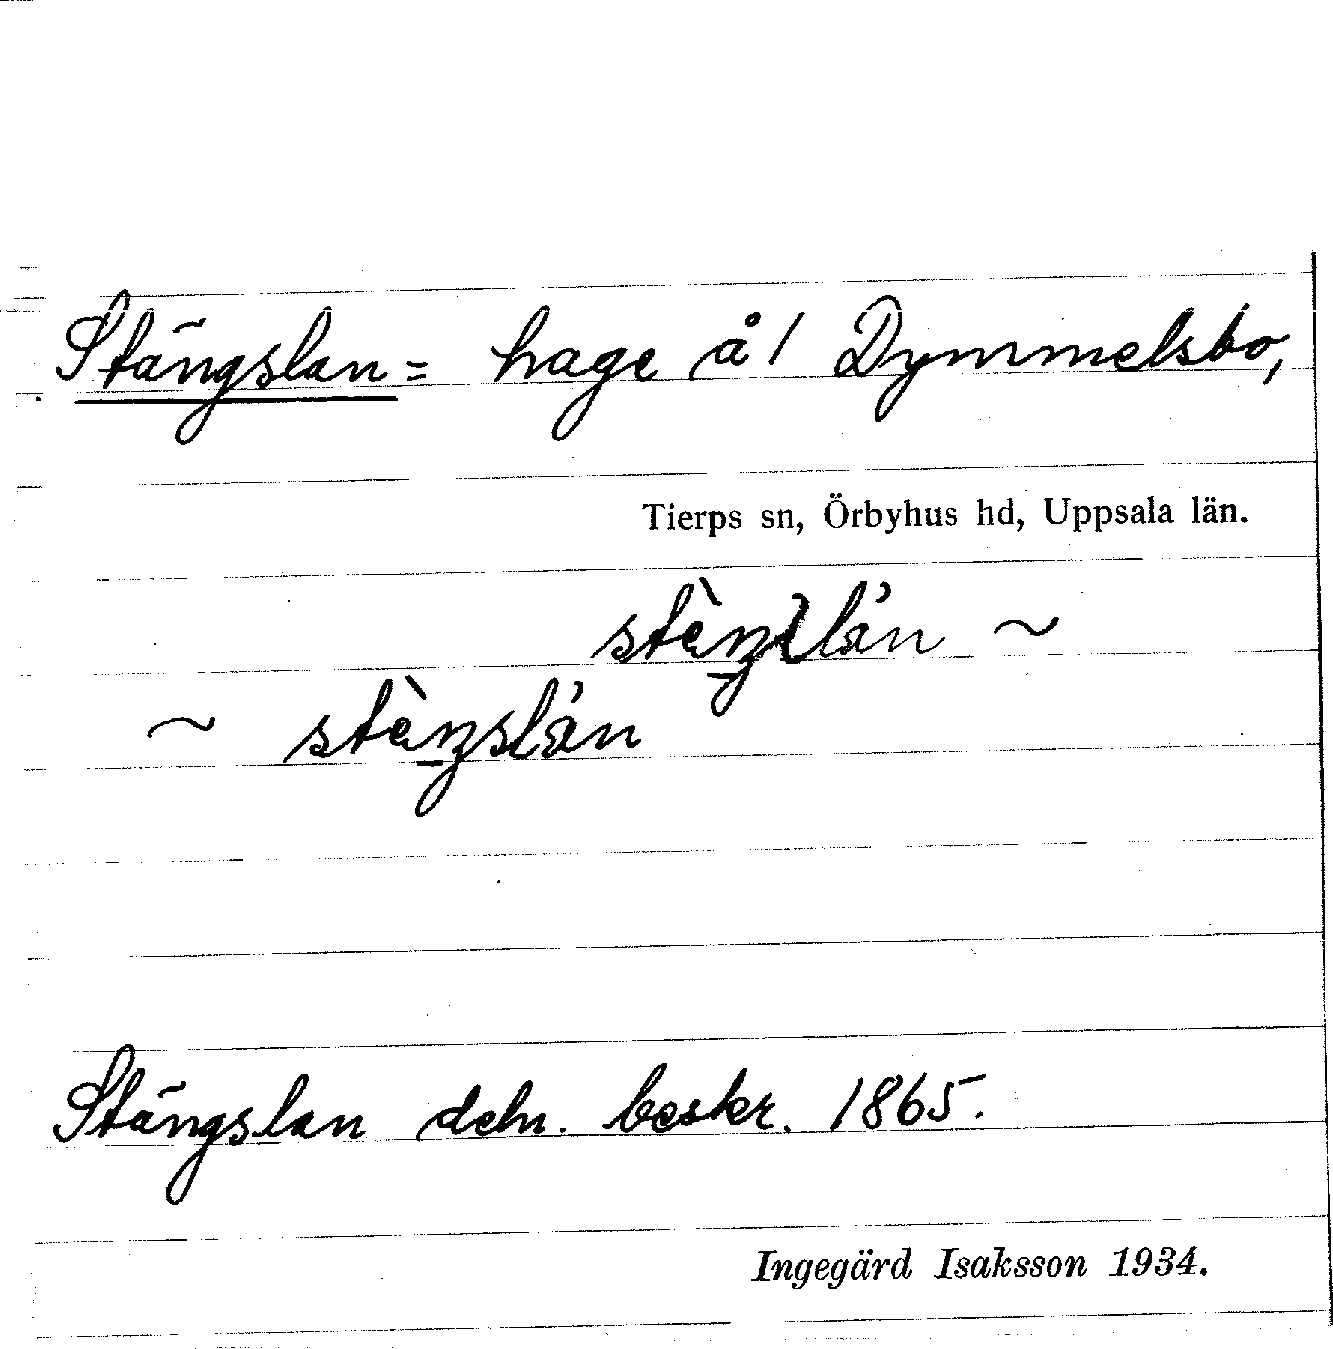 Stängslan = hage å 1 Dymmelsbo,
Tierps sn, Örbyhus hd, Uppsala län.
~
~
Stängslan dehn. beskr. 1865.
Ingegärd Isaksson 1934.